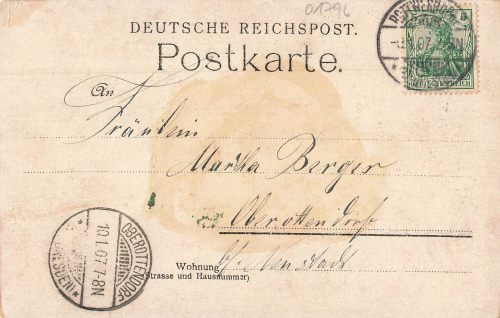 01296
DEUTSCHE REICHSPOST.
Postkarte.
An
Fräulein
Martha Berger
Oberottendorf
b/ Neustadt
Wohnung
(Strasse und Hausnummer)
OBEROTTENDORF
10.1.07.7-8N